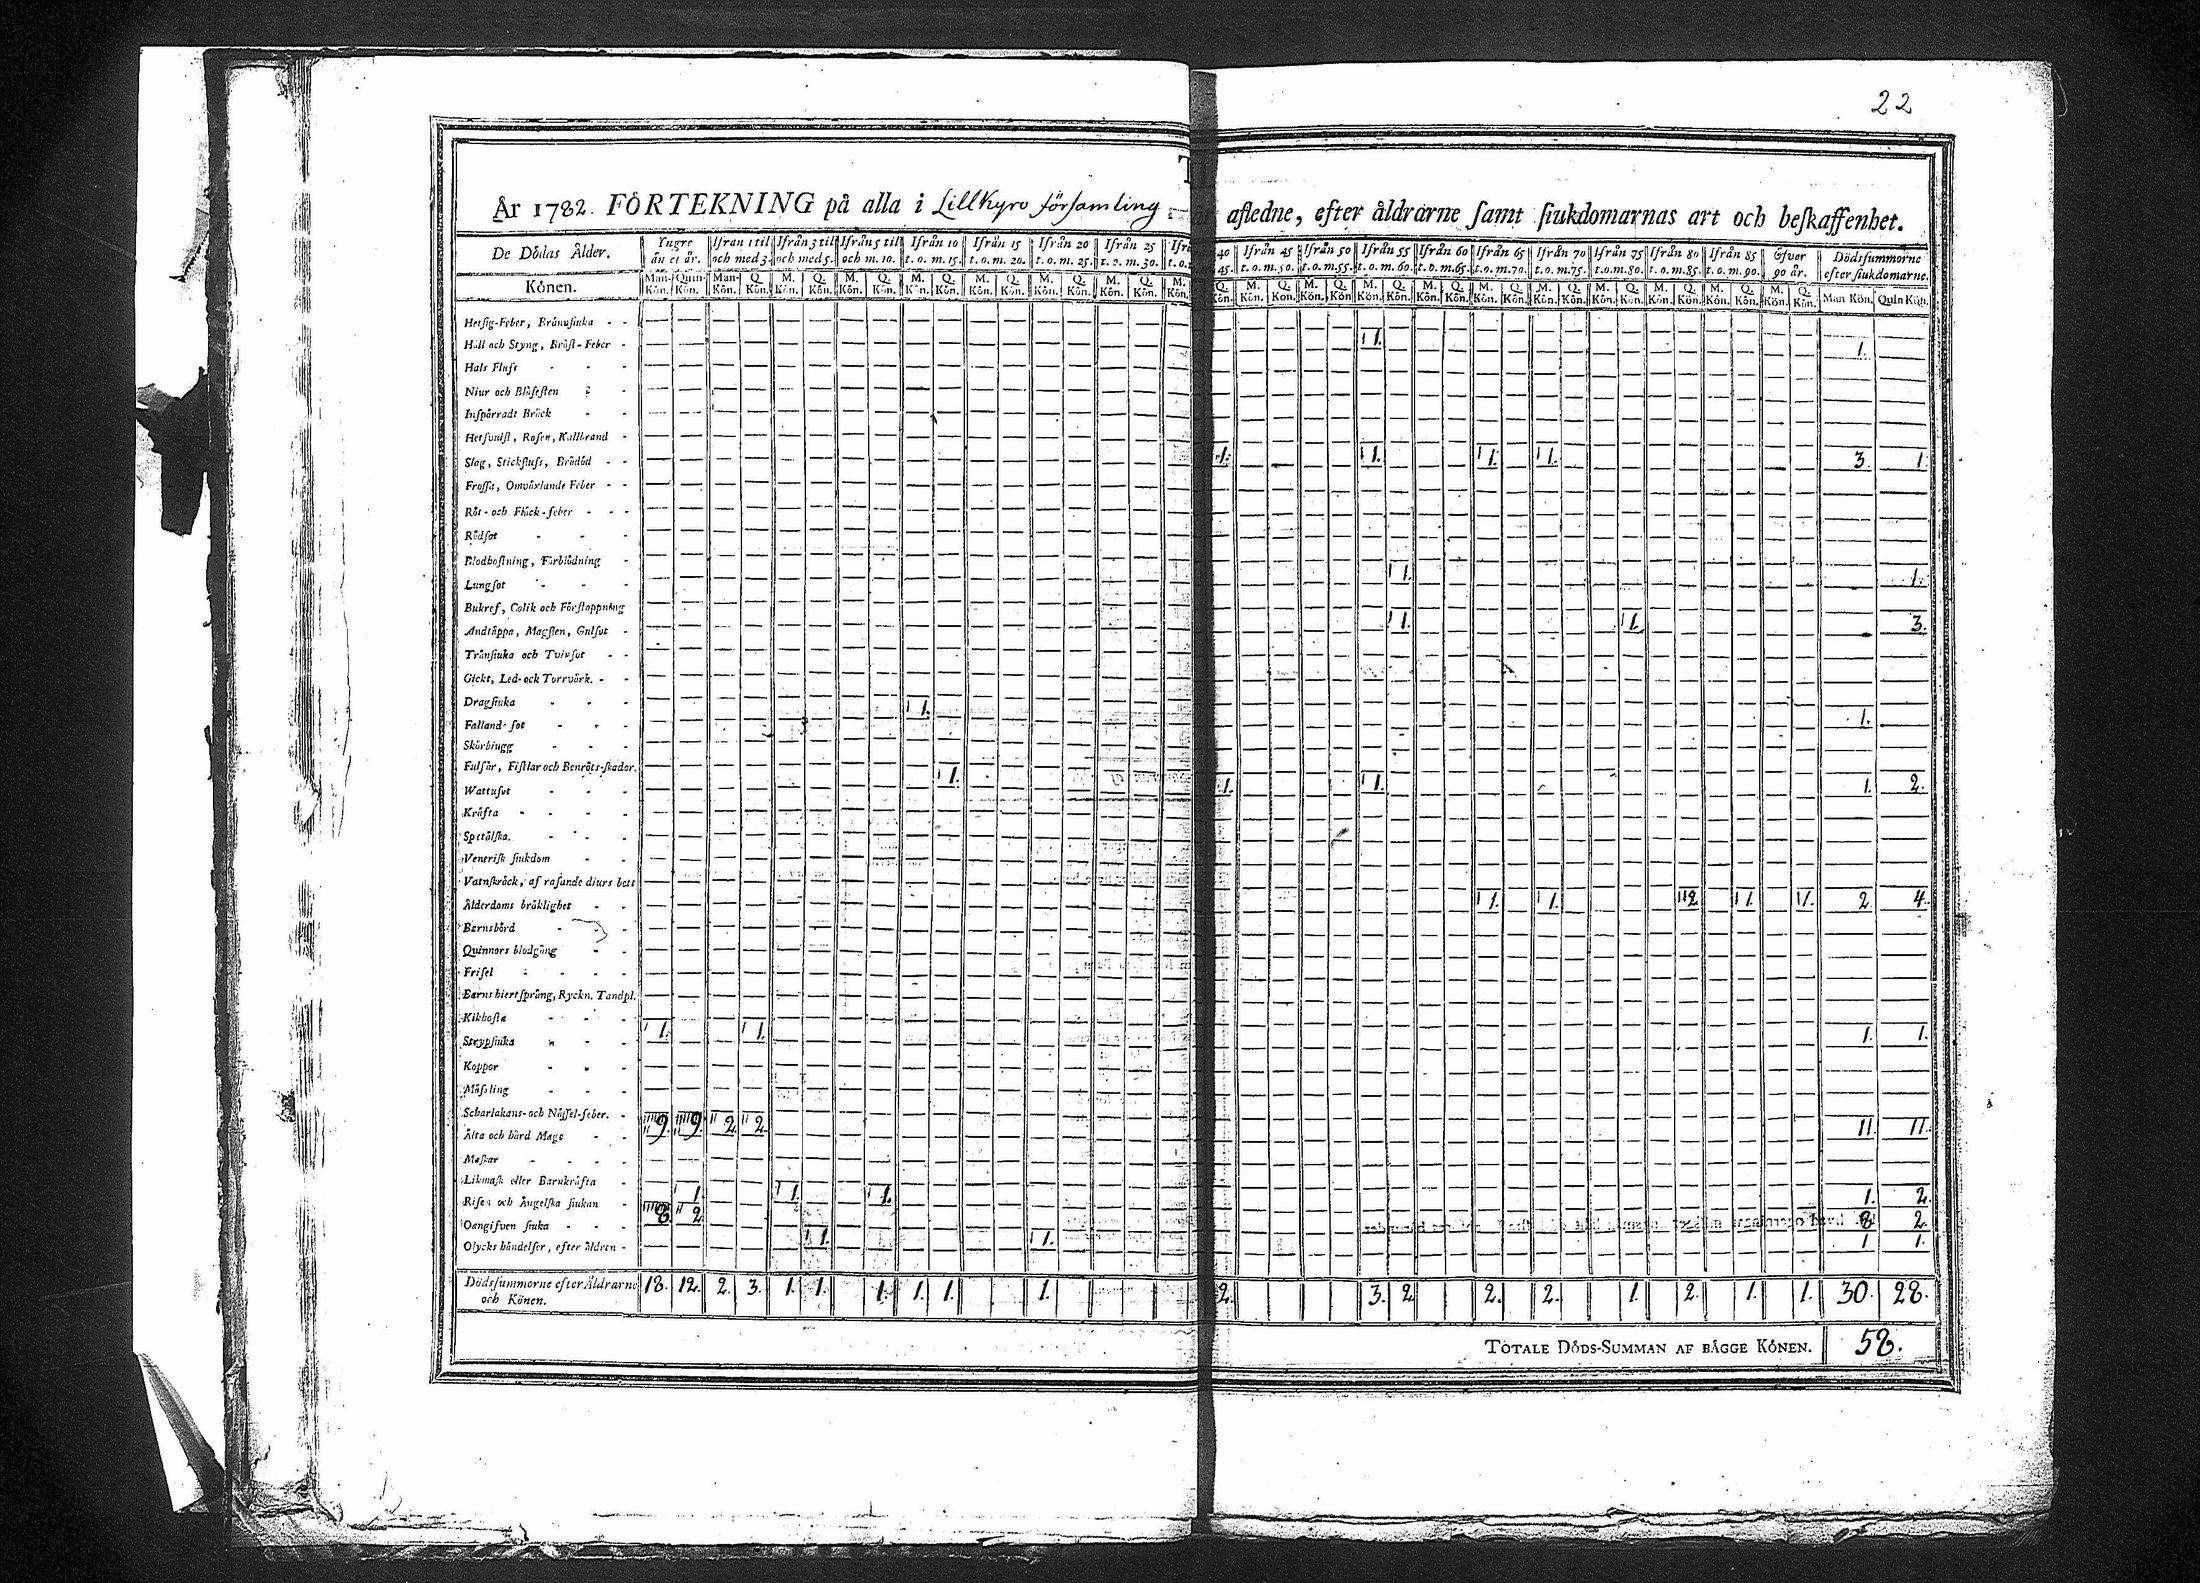 22
År 1782. FÖRTEKNING på alla i Lillkyro församling afledne, efter åldrarne samt siukdomarnas art och beskaffenhet.
De Dödas Ålder. Yngre än et år. Ifrån 1 til och med 3. Ifrån 3 til och med 5. Ifrån 5 til och m. 10. Ifrån 10 t. o. m. 15. Ifrån 15 t. o. m. 20. Ifrån 20 t. o. m. 25. Ifrån 25 t. o. m. 30. 40 45. Ifrån 45 t. o. m. 50. Ifrån 50 t. o. m. 55. Ifrån 55 t. o. m. 60. Ifrån 60 t. o. m. 65. Ifrån 65 t. o. m. 70. Ifrån 70 t. o. m. 75. Ifrån 75 t. o. m. 80. Ifrån 80 t. o. m. 85. Ifrån 85 t. o. m. 90. Öfver 90 år. Dödssummorne efter siukdomarne.
Könen. Man-Kön. Quin-Kön. Man-Kön. Q. Kön. M. Kön. Q. Kön. M. Kön. Q. Kön. M. Kön. Q. Kön. M. Kön. Q. Kön. M. Kön. Q. Kön. M. Kön. Q. Kön. M. Kön. Q. Kön. M. Kön. Q. Kön. M. Kön. Q. Kön. M. Kön. Q. Kön. M. Kön. Q. Kön. M. Kön. Q. Kön. M. Kön. Q. Kön. M. Kön. Q. Kön. M. Kön. Q. Kön. M. Kön. Q. Kön. M. Kön. Q. Kön. Man Kön. Quin Kön.
Hetsig-Feber, Brännsiuka
Håll och Styng, Bröst-Feber 1. 1.
Hals Fluss
Niur och Blåsesten
Inspärradt Bråck
Hetsvulst, Rosen, Kallbrand
Slag, Stickfluss, Brådöd 1. 1. 1. 1. 3. 1.
Frossa, Omväxlande Feber
Röt- och Fläck-feber
Rödsot
Blodhostning, Förblödning
Lungsot 1. 1.
Bukref, Colik och Förstoppning
Andtäppa, Magsten, Gulsot 1. 1. 3.
Trånsiuka och Tvinsot
Gickt, Led- och Torrvärk.
Dragsiuka 1. 1.
Falland-sot
Skörbiugg
Fulsår, Fistlar och Benröts-skador.
Wattusot 1. 1. 1. 1. 2.
Kräfta
Spetälska.
Venerisk siukdom
Vatnskräck, af rasande diurs bett
Ålderdoms bräklighet 1. 1. 2 1. 1. 2 4.
Barnsbörd
Quinnors blodgång
Frisel
Barns hiertsprång, Ryckn. Tandpl.
Kikhosta
Strypsiuka 1. 1. 1. 1.
Koppor
Mässling
Scharlakans- och Nässel-feber.
Älta och hård Mage 9. 9. 2 2. 11. 11.
Maskar
Likmask eller Barnkräfta
Risen och Ängelska siukan 1. 1. 1. 1. 2.
Oangifven siuka 8. 2. 8. 2.
Olycks händelser, efter åldren 1. 1. 1 1.
Dödssummorne efter Åldrarne och Könen. 18. 12. 2. 3. 1. 1. 1. 1. 1. 1. 2. 3. 2 2. 2. 1. 2. 1. 1. 30. 28.
TOTALE DÖDS-SUMMAN AF BÄGGE KÖNEN. 58.